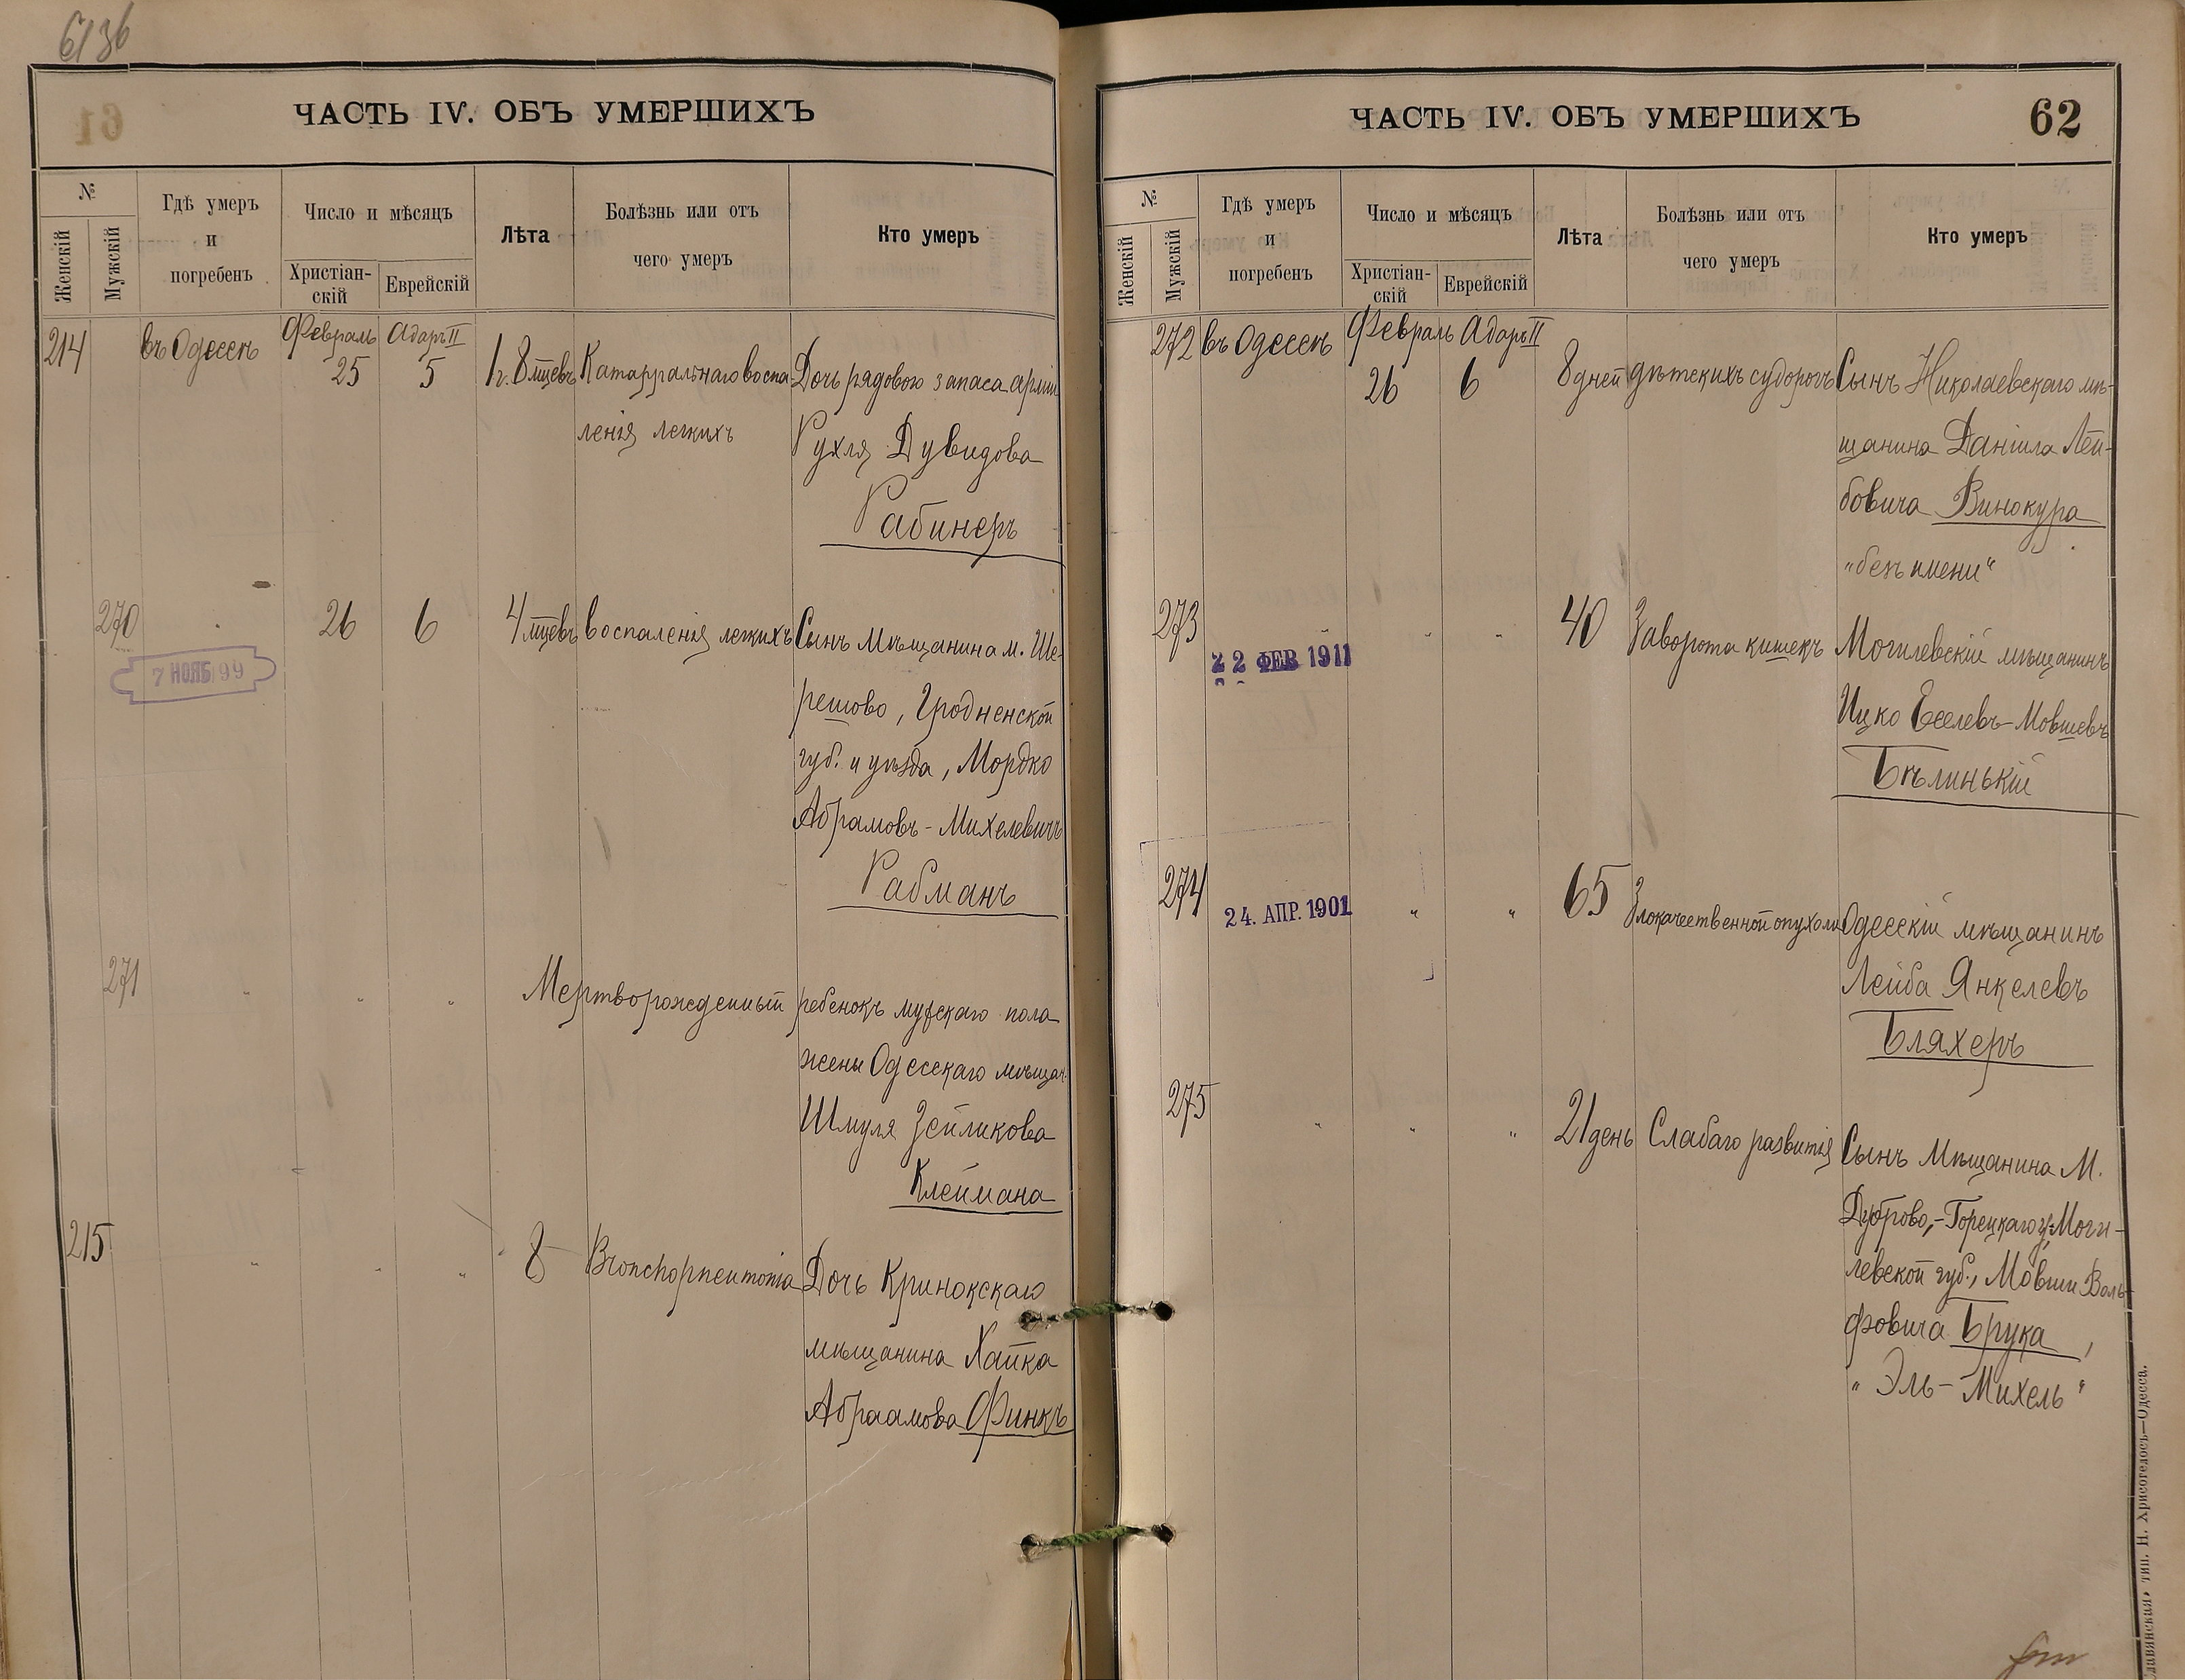 6136
ЧАСТЬ IV. ОБЪ УМЕРШИХЪ
№
Женскій
Мужскій
Гдѣ умеръ
и
погребенъ
Число и мѣсяцъ
Христіан-
скій
Еврейскій
Лѣта
Болѣзнь или отъ
чего умеръ
Кто умеръ
214
въ Одессѣ
Февраль
25
Адаръ II
5
1 г. 8 мцевъ
Катарральнаго воспа
ленія легкихъ
Дочь рядового запаса арміи
Рухля Дувидова
Рабинеръ
270
7 НОЯБ 99
26
6
4 мцевъ
воспаленія легкихъ
Сынъ мѣщанина м. Ше-
решово, Гродненской
губ. и уѣзда, Мордко
Абрамовъ-Михелевичъ
Рабманъ
271
" " "
Мертворожденный ребенокъ мужскаго пола
жены Одесскаго мѣщан.
Шмуля Зейликова
Клеймана
215
" " "
8
Bronchopneumonia
Дочь Кринокскаго
мѣщанина Хайка
Абраамова Финкъ
ЧАСТЬ IV. ОБЪ УМЕРШИХЪ
62
№
Женскій
Мужскій
Гдѣ умеръ
и
погребенъ
Число и мѣсяцъ
Христіан-
скій
Еврейскій
Лѣта
Болѣзнь или отъ
чего умеръ
Кто умеръ
272
въ Одессѣ
Февраль
26
Адаръ II
6
8 дней
дѣтскихъ судорогъ
Сынъ Николаевскаго мѣ-
щанина Даніила Лей-
бовича Винокура
"безъ имени"
273
22 ФЕВ 1911
" "
40
Заворота кишекъ
Могилевскій мѣщанинъ
Ицко Еселевъ-Мовшевъ
Бѣлинькій
274
24. АПР. 1901
" "
65
Злокачественной опухоли
Одесскій мѣщанинъ
Лейба Янкелевъ
Бляхеръ
275
" " "
21 день
Слабаго развитія
Сынъ Мѣщанина М.
Дуброво,-Горецкаго у. Моги-
левской губ., Мовши Воль-
фовича Брука,
"Эль-Михель"
«Славянская» тип. Н. Хрисогелосъ—Одесса.